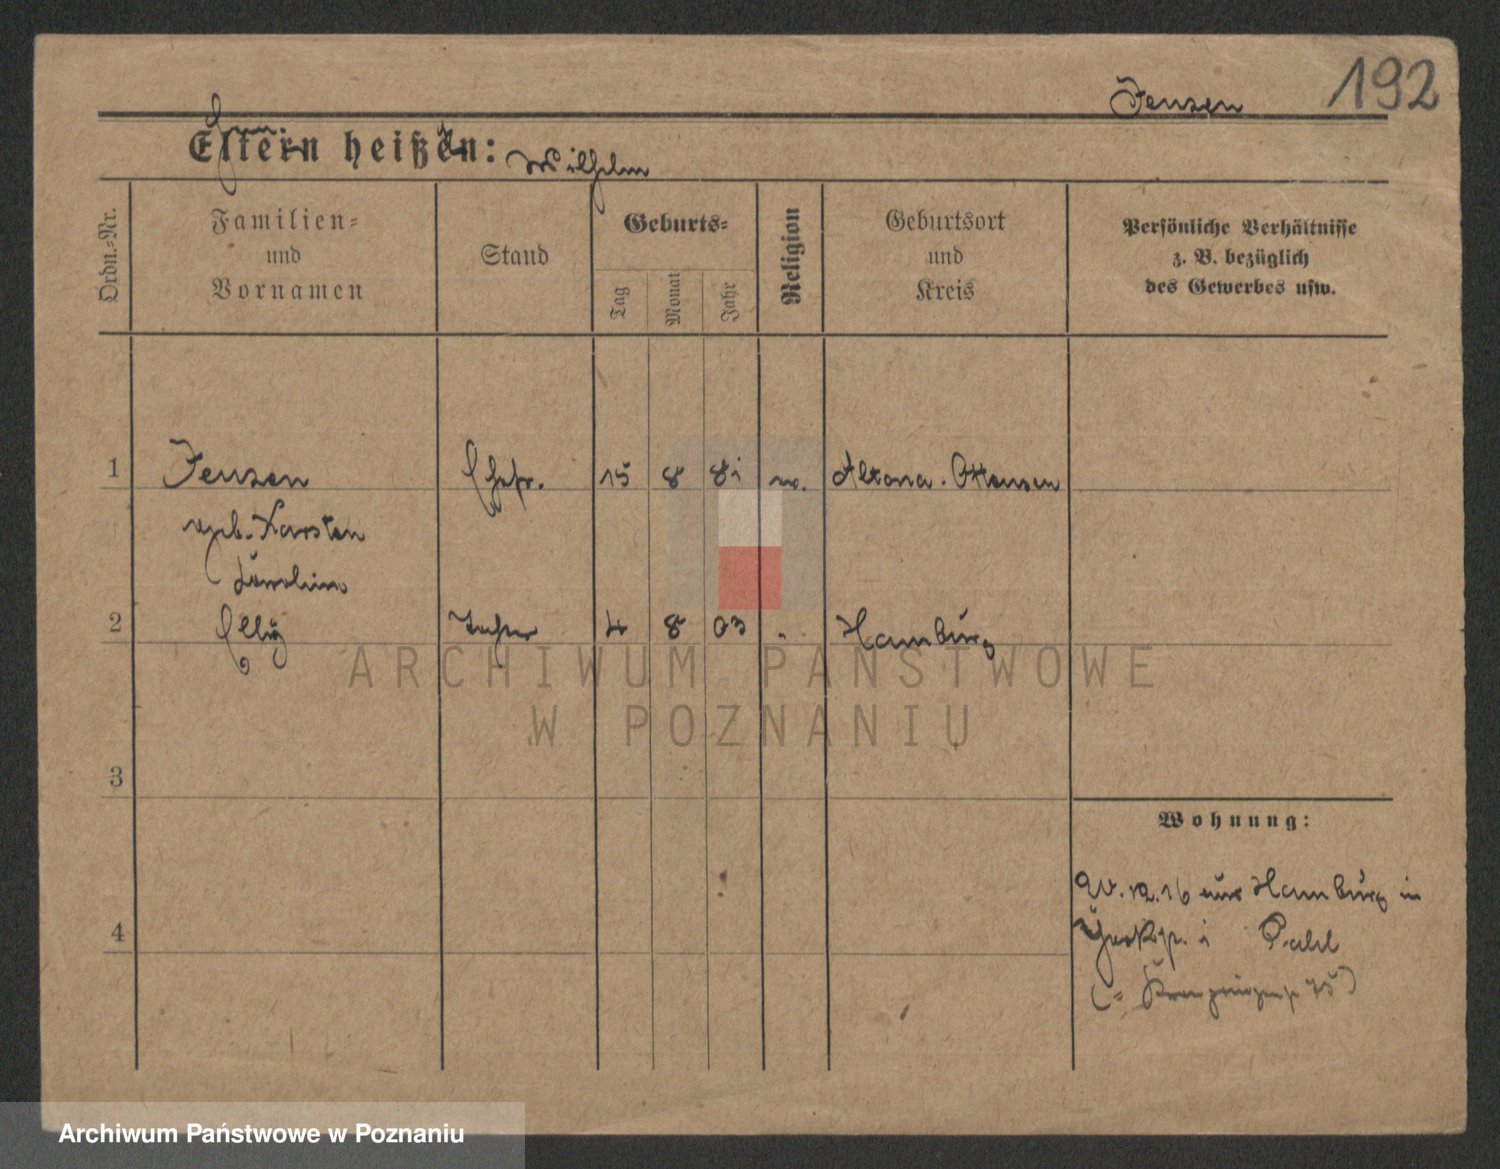 Jensen
192
Eltern heißen:
Wilhelm
Ordn.-Nr.
Familien-
und
Vornamen
Stand
Geburts-
Tag
Monat
Jahr
Religion
Geburtsort
und
Kreis
Persönliche Verhältnisse
z. B. bezüglich
des Gewerbes usw.
1
Jensen
Ehefr.
15
8
81
ev.
Altona-Ottensen
geb. Karsten
2
Elly
Tochter
4
8
03
Hamburg
ARCHIWUM PAŃSTWOWE
W POZNANIU
3
Wohnung:
12.16 aus Hamburg in
4
Archiwum Państwowe w Poznaniu